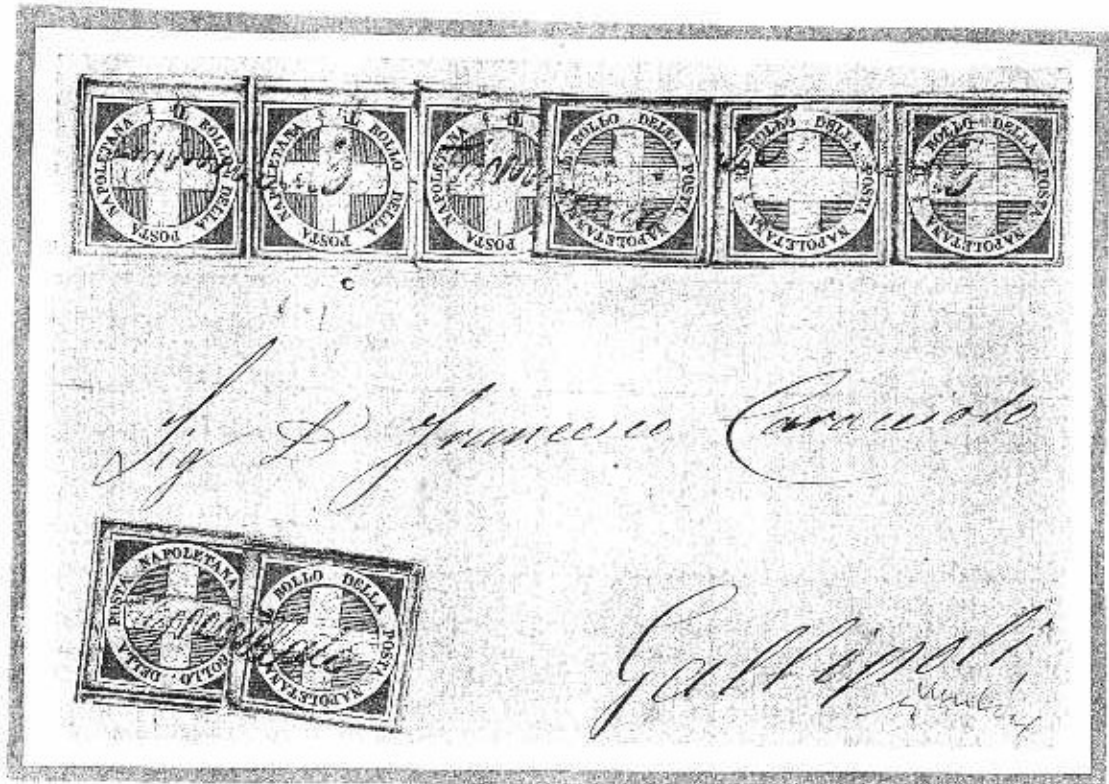 IL BOLLO DELLA POSTA NAPOLETANA
IL BOLLO DELLA POSTA NAPOLETANA
IL POSTA NAPOLETANA
BOLLO DELLA POSTA NAPOLETANA
BOLLO DELLA POSTA NAPOLETANA
BOLLO DELLA POSTA NAPOLETANA
c
Sig D Francesco Caracciolo
BOLLO DELLA POSTA NAPOLETANA
BOLLO DELLA POSTA NAPOLETANA
Gallipoli